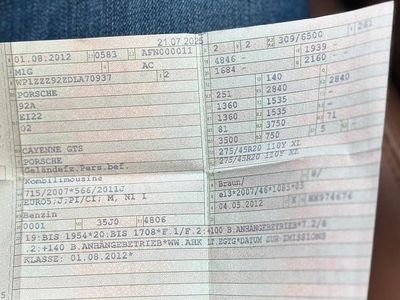 21.07.2025
01.08.2012 0583 AFN000011 2 2 309/6500 263
M1G AC 4846 – 1939 –
WP1ZZZ92ZDLA70937 2 1684 – 2160 –
PORSCHE 140 2840
92A 251 2840 –
EI22 1360 1535 –
02 1360 1535 –
81 3750 71
CAYENNE GTS 3500 750 5
PORSCHE 275/45R20 110Y XL
Geländefz.Pers.bef. 275/45R20 110Y XL
Kombilimousine
715/2007*566/2011J Braun/ 8/
EURO5;PI/CI; M, N1 I e13*2007/46*1085*03
Benzin 04.05.2012 X
0001 35J0 4806
19:BIS 1954*20:BIS 1708*F.1/F.2:+100 B.ANHÄNGEBETRIEB*7.2/8
.2:+140 B.ANHÄNGEBETRIEB*WW.AHK LT.EGTG*DATUM ZUR EMISSIONS
KLASSE: 01.08.2012*